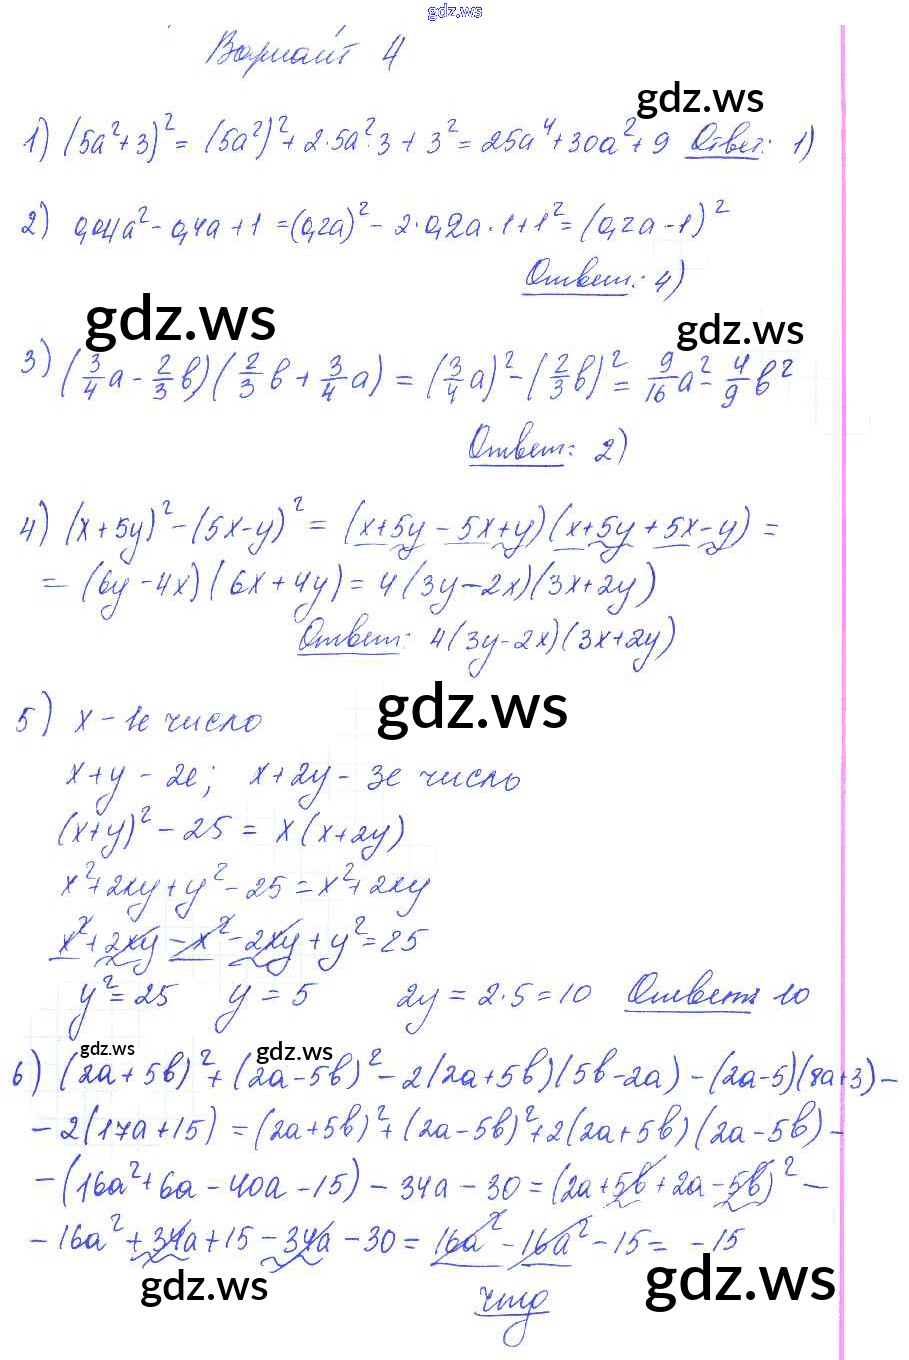 gdz.ws
Вариант 4
gdz.ws
1) (5a²+3)² = (5a²)² + 2·5a²·3 + 3² = 25a⁴ + 30a² + 9 Ответ: 1)
2) 0,04a² - 0,4a + 1 = (0,2a)² - 2·0,2a·1 + 1² = (0,2a - 1)²
Ответ: 4)
gdz.ws
gdz.ws
3) (3/4 a - 2/3 b)(2/3 b + 3/4 a) = (3/4 a)² - (2/3 b)² = 9/16 a² - 4/9 b²
Ответ: 2)
4) (x+5y)² - (5x-y)² = (x+5y - 5x+y)(x+5y+5x-y) =
= (6y - 4x)(6x + 4y) = 4(3y-2x)(3x+2y)
Ответ: 4(3y-2x)(3x+2y)
gdz.ws
5) x - 1е число
x+y - 2е; x+2y - 3е число
(x+y)² - 25 = x(x+2y)
x²+2xy+y² - 25 = x²+2xy
x²+2xy - x² - 2xy + y² = 25
y² = 25 y = 5 2y = 2·5 = 10 Ответ: 10
gdz.ws
gdz.ws
6) (2a+5b)² + (2a-5b)² - 2(2a+5b)(5b-2a) - (2a-5)(8a+3) -
- 2(17a+15) = (2a+5b)² + (2a-5b)² + 2(2a+5b)(2a-5b) -
- (16a²+6a - 40a - 15) - 34a - 30 = (2a+5b+2a-5b)² -
- 16a² + 34a + 15 - 34a - 30 = 16a² - 16a² - 15 = -15
gdz.ws
чтд
gdz.ws